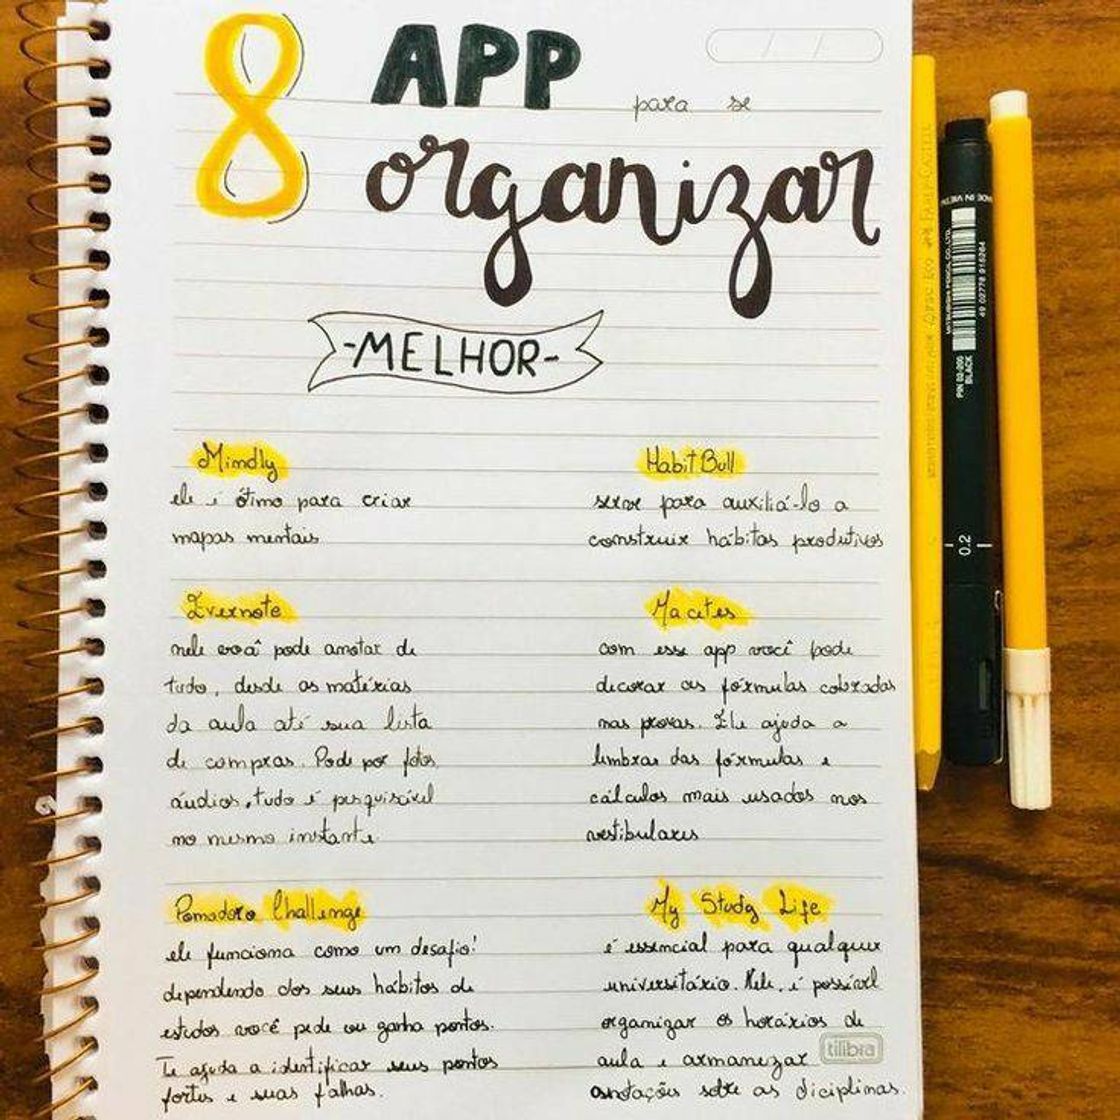 8 APP para se
organizar
-MELHOR-
Mindly
ele é ótimo para criar
mapas mentais
HabitBull
serve para auxiliá-lo a
construir hábitos produtivos
Evernote
nele você pode anotar de
tudo, desde as matérias
da aula até sua lista
de compras. Pode por fotos,
áudios, tudo é pesquisável
no mesmo instante.
Macetes
com esse app você pode
decorar as fórmulas cobradas
nas provas. Ele ajuda a
lembrar das fórmulas e
cálculos mais usados nos
vestibulares
Pomodoro Challenge
ele funciona como um desafio!
dependendo dos seus hábitos de
estudos você pede ou ganha pontos.
Te ajuda a identificar seus pontos
fortes e suas falhas.
My Study Life
é essencial para qualquer
universitário. Nele, é possível
organizar os horários de
aula e armanezar
anotações sobre as diciplinas.
tilibra
MADE IN VIETN
MITSUBISHI PENCIL CO., LTD.
49 02778 915264
PIN 02-200
BLACK
0.2